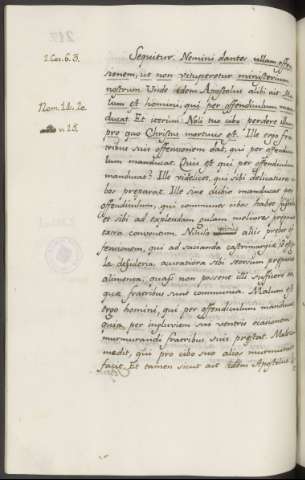 2. Cor. 6. 3.
Rom. 14. 20.
v. 15.
Sequitur. Nemini dantes ullam offen
sionem, ut non vituperetur ministerium
nostrum. Unde idem Apostolus alibi ait. Ma
lum est homini, qui per offendiculum man
ducat. Et iterum. Noli tuo cibo perdere illum
pro quo Christus mortuus est. Ille ergo fra
tribus suis offensionem dat, qui per offendicu
lum manducat. Quis est qui per offendiculum
manducat? Ille videlicet, qui sibi delicatiora ci
bos preparat. Ille sine dubio manducat per
offendiculum, qui communes cibos habet
et sibi ad explendam gulam meliores prepara
extra conventum. Nihilo minus aliis prebet of
fensionem, qui ad sacianda
desideria, accuratiora sibi seorsum preparat
alimenta, quasi non possent illi sufficere ea
que fratribus sunt communia. Malum est
ergo homini, qui per offendiculum manducat
quia per ingluviem sui ventris occasionem
murmurandi fratribus suis prestat. Male
medit, qui pro cibo suo alios murmurare
facit. Et tamen sicut ait idem Apostolus